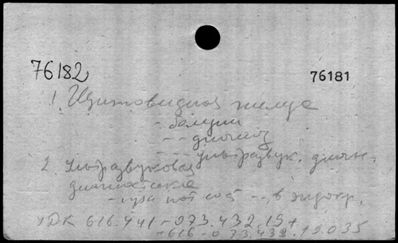 76182
76181
1. Щитовидная железа
- болезни
-- диагноз
2. Ультразвуковая -- ультразвук. диагн.
диагностика
- при пат сост -- в эндокр.
УДК 616.441-073.432.19+
-616-073.432.19.035